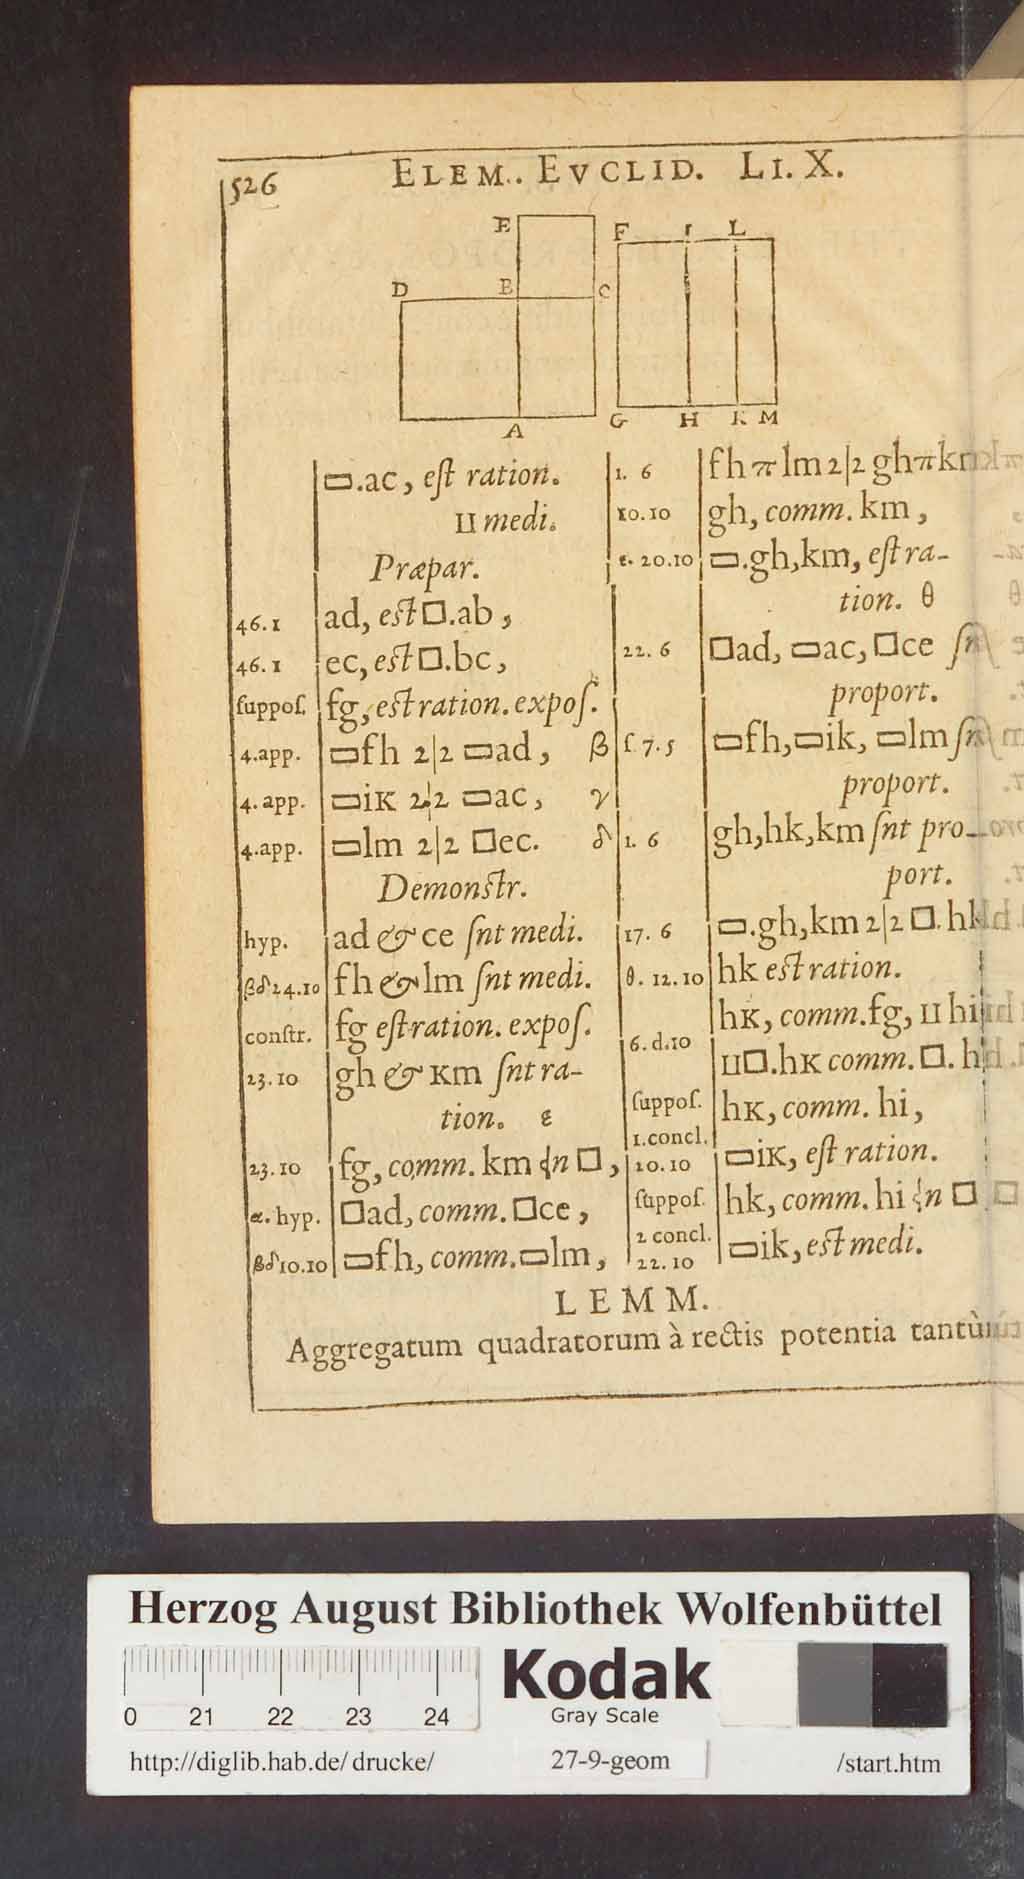 526 ELEM. EVCLID. LI. X.
E
F I L
D B C
G H K M
A
▭.ac, est ration.
II medi.
Præpar.
46.1 ad, est □.ab,
46.1 ec, est □.bc,
suppos. fg, est ration. expos.
4.app. ▭fh 2|2 ▭ad, β
4.app. ▭iK 2|2 ▭ac, γ
4.app. ▭lm 2|2 □ec. δ
Demonstr.
hyp. ad & ce snt medi.
βδ24.10 fh & lm snt medi.
constr. fg est ration. expos.
23.10 gh & Km snt ra-
tion. ε
23.10 fg, comm. km □,
α. hyp. □ad, comm. □ce,
βδ10.10 ▭fh, comm. ▭lm,
1. 6 fh π lm 2|2 gh π km
10.10 gh, comm. km,
ε. 20.10 ▭.gh,km, est ra-
tion. θ
22. 6 □ad, ▭ac, □ce
proport.
f. 7. 5 ▭fh, ▭ik, ▭lm
proport.
1. 6 gh,hk,km snt pro-
port.
17. 6 ▭.gh,km 2|2 □.hk
θ. 12.10 hk est ration.
hK, comm. fg, II hi
6.d.10 II□.hK comm. □. hi
suppos. hK, comm. hi,
1.concl.
10.10 ▭iK, est ration.
suppos. hk, comm. hi □
2 concl.
22.10 ▭ik, est medi.
LEMM.
Aggregatum quadratorum à rectis potentia tantùm
Herzog August Bibliothek Wolfenbüttel
Kodak
0 21 22 23 24 Gray Scale
http://diglib.hab.de/ drucke/ 27-9-geom /start.htm